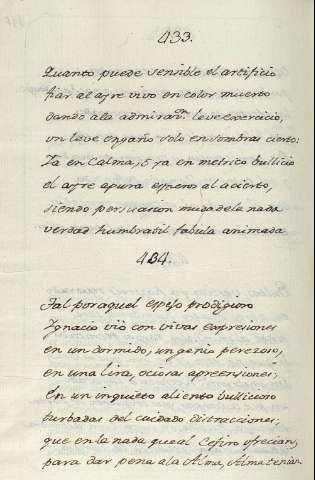 433.
Quanto puede sensible el artificio
fiar al ayre vivo en color muerto
dando ala admirar.ⁿ leve exercicio,
un leve engaño solo en sombras cierto:
Ya en Calma, ó ya en metrico bullicio
el ayre apura esmero al acierto,
siendo persuacion muda dela nada
verdad fabula animada
434.
Tal por aquel espejo prodigioso
Ygnacio vió con vivas expresiones
en un dormido, un genio perezoso,
en una lira, ociosas apreensiones;
En un inquieto aliento bullicioso
turbadas del cuidado distracciones,
que en la nada que al Cefiro ofrecian,
para dar pena ala Alma, Alma tenian.